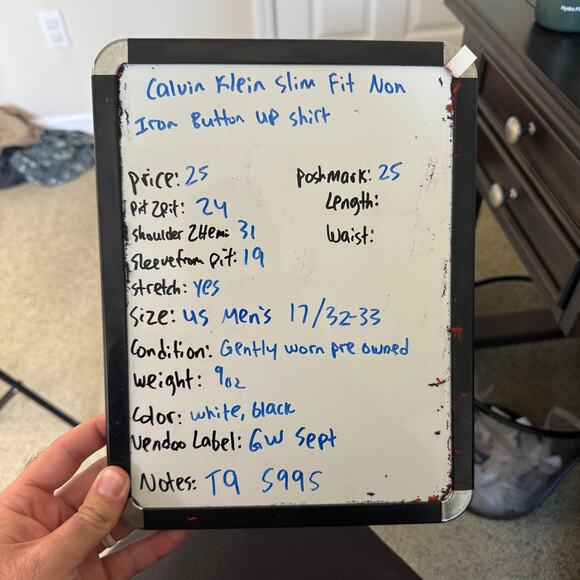 Calvin Klein Slim Fit Non
Iron Button Up Shirt
Price: 25
Poshmark: 25
Pit 2 pit: 24
Length:
Shoulder 2 Hem: 31
Waist:
Sleeve from pit: 19
Stretch: Yes
Size: US Men's 17/32-33
Condition: Gently worn pre owned
Weight: 9oz
Color: white, black
Vendoo Label: GW Sept
Notes: T9 5995
Hydro Fl